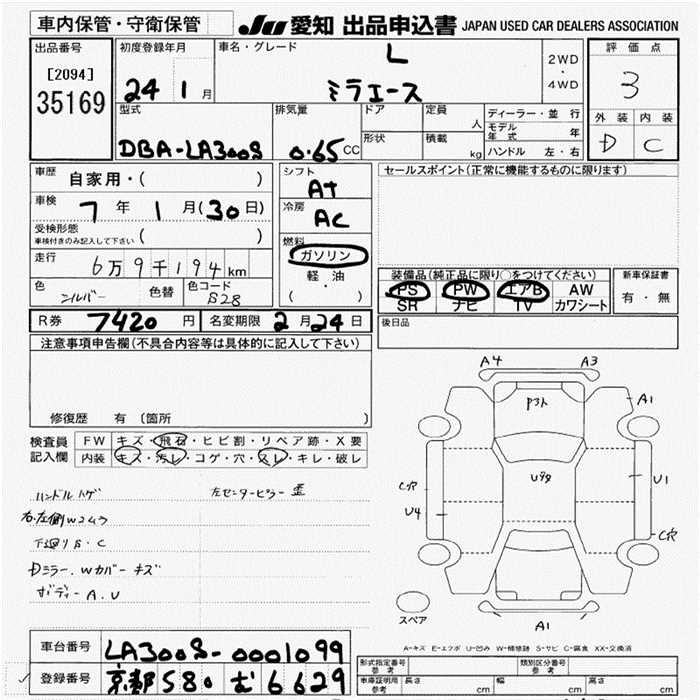 車内保管・守衛保管
JU 愛知 出品申込書 JAPAN USED CAR DEALERS ASSOCIATION
出品番号
[2094]
35169
初度登録年月
24 1 月
車名・グレード
L
ミラエース
2WD
・
4WD
評価点
3
外装 内装
D C
型式
DBA-LA300S
排気量
0.65 CC
ドア
形状
定員
人
積載
kg
ディーラー・並行
モデル年式 年
ハンドル 左・右
車歴
自家用・( )
車検
7 年 1 月(30日)
受検形態
車検付きのみ記入して下さい ( )
走行
6万9千194km
色
シルバー
色替
色コード
S28
シフト
At
冷房
AC
燃料
ガソリン
軽・油
( ・ )
セールスポイント(正常に機能するものに限ります)
装備品(純正品に限り○をつけてください)
PS PW エアB AW
SR ナビ TV カワシート
新車保証書
有・無
後日品
R券 7420 円 名変期限 2月24日
注意事項申告欄(不具合内容等は具体的に記入して下さい)
修復歴 有 〔箇所 〕
検査員記入欄
FW キズ・飛石・ヒビ割・リペア跡・X要
内装 キズ・汚レ・コゲ・穴・スレ・キレ・破レ
ハンドルハゲ 左センターピラー 歪
右.左側Wコムラ
下廻りS・C
Dミラー.Wカバー キズ
ボディーA.U
A4 A3
P3ト
A1
Uワタ
C穴
U4
U1
C穴
スペア
A1
A-キズ E-エクボ U-凹み W-補修跡 S-サビ C-腐食 XX-交換済
車台番号 LA300S-0001099
登録番号 京都580 む 6629
形式指定番号 参考
類別区分番号 参考
車庫証明用 参考
長さ cm
幅 cm
高さ cm